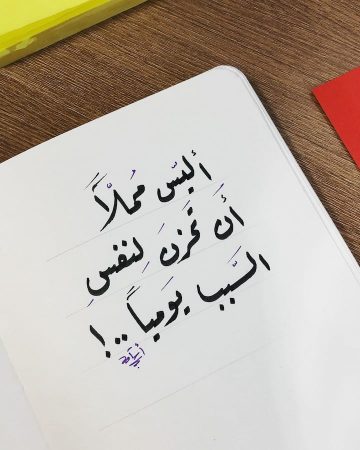 أليسَ مُملاًّ
أَن تَحزنَ لِنفسِ
السَّببِ يَومياً..!